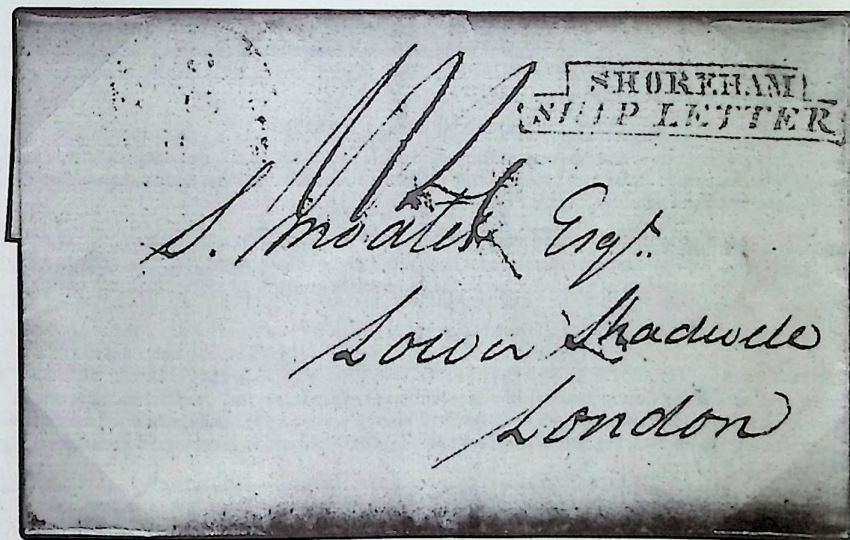 SHOREHAM
SHIP LETTER
S. Esqr.
Lower Shadwell
London